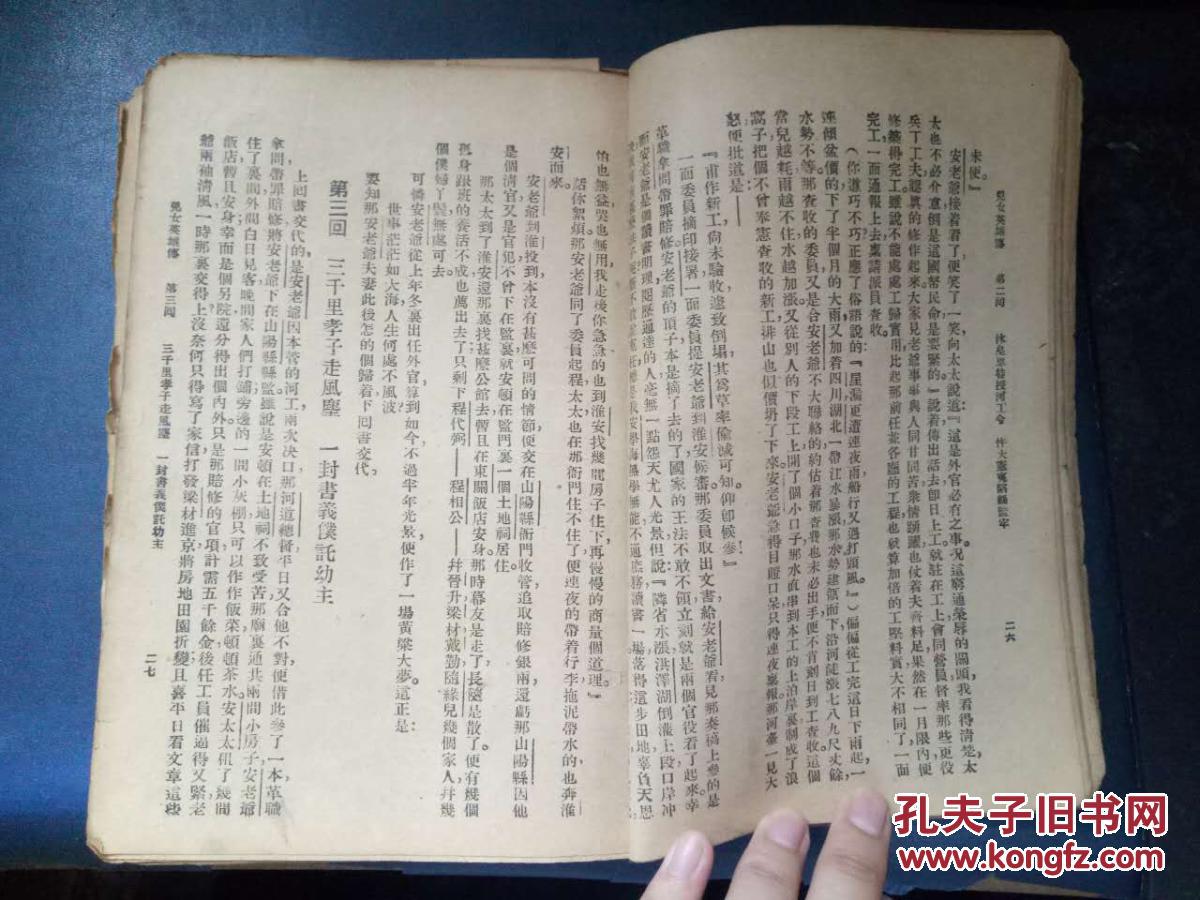 兒女英雄傳　第二回　沐皇恩特授河工令　忤大憲冤陷縲絏牢
二六
未便』
安老爺接着看了便笑了一笑向太太說道『這是外官必有之事況這窮通榮辱的關頭我看得清楚太
太也不必介意倒是這國帑民命是要緊的』說着傳出話去卽日上工就駐在工上會同營員督率那些吏役
兵丁工夫認眞的修作起來大家見老爺事事與人同甘同苦衆情踴躍也仗着夫齊料足果然在一月限內便
修築得完工雖說不能處處工歸實用比起那前任並各廳的工程也就算加倍的工堅料實大不相同了一面
完工一面通報上去稟請派員查收
（你道巧不巧正應了俗語說的『屋漏更遭連夜雨船行又遇打頭風』）偏偏從工完這日下雨起一
連傾盆價的下了半個月的大雨又加着四川湖北一帶江水暴漲那水勢建瓴而下沿河陡漲七八九尺丈餘
水勢不等那查收的委員又是合安老爺不大聯絡的約估着那查費也未必出手便不肯剋日到工查收這個
當兒越耗雨越不住水越加漲又從別人的下段工上開了個小口子那水直串到本工的上泊岸裏制成了浪
窩子把個不曾奉憲查收的新工排山也似價坍了下來安老爺急得目瞪口呆只得連夜稟報那河臺一見大
怒便批道是——
『甫作新工尙未驗收遂致倒塌其爲草率偷減可知仰卽候參』
一面委員摘印接署一面委員提安老爺到淮安候審那委員取出文書給安老爺看見那奏稿上參的是
革職拿問帶罪賠修安老爺的頂子本是摘了去的了國家的王法不敢不領立刻就是兩個官役看了起來幸
而安老爺是個讀書明理閱歷通達的人毫無一點怨天尤人光景但說『隣省水漲洪澤湖倒灌上段口岸冲
怕也無益哭也無用我走後你急急的也到淮安找幾間房子住下再慢慢的商量個道理』
話休絮煩那安老爺同了委員起程太太也在那衙門住不住了便連夜的帶着行李拖泥帶水的也奔淮
安而來
安老爺到淮投到本沒有甚麽可問的情節便交在山陽縣衙門收管追取賠修銀兩還虧那山陽縣因他
是個淸官又是官犯不曾下在監裏就安頓在監門裏一個土地祠居住
那太太到了淮安還那裏找甚麽公館去暫且在東關飯店安身那時幕友是走了長隨是散了便有幾個
孤身跟班的養活不成也薦出去了只剩下程代弼——程相公——幷晉升梁材戴勤隨緣兒幾個家人幷幾
個僕婦丫鬟無處可去
可憐安老爺從上年冬裏出任外官算到如今不過半年光景便作了一場黃粱大夢這正是
世事茫茫如大海人生何處不風波？
要知那安老爺夫妻此後怎的個歸着下回書交代
第三回　三千里孝子走風塵　一封書義僕託幼主
上回書交代的是安老爺因本管的河工兩次決口那河道總督平日又合他不對便借此參了一本革職
拿問帶罪賠修將安老爺下在山陽縣縣監雖說是安頓在土地祠不致受苦那廟裏通共兩間小房子安老爺
住了裏間外間白日見客晚間家人們打鋪旁邊的一間小灰棚只可以作作飯菜頓頓茶水安太太租了幾間
飯店暫且安身幸而是個另院還分得出個內外只是那賠修的官項計需五千餘金後任工員催逼得又緊老
爺兩袖清風一時那裏交得上沒奈何只得寫了家信打發梁材進京將房地田園折變且喜平日看文章這些
兒女英雄傳　第三回　三千里孝子走風塵　一封書義僕託幼主
二七
孔夫子旧书网
www.kongfz.com